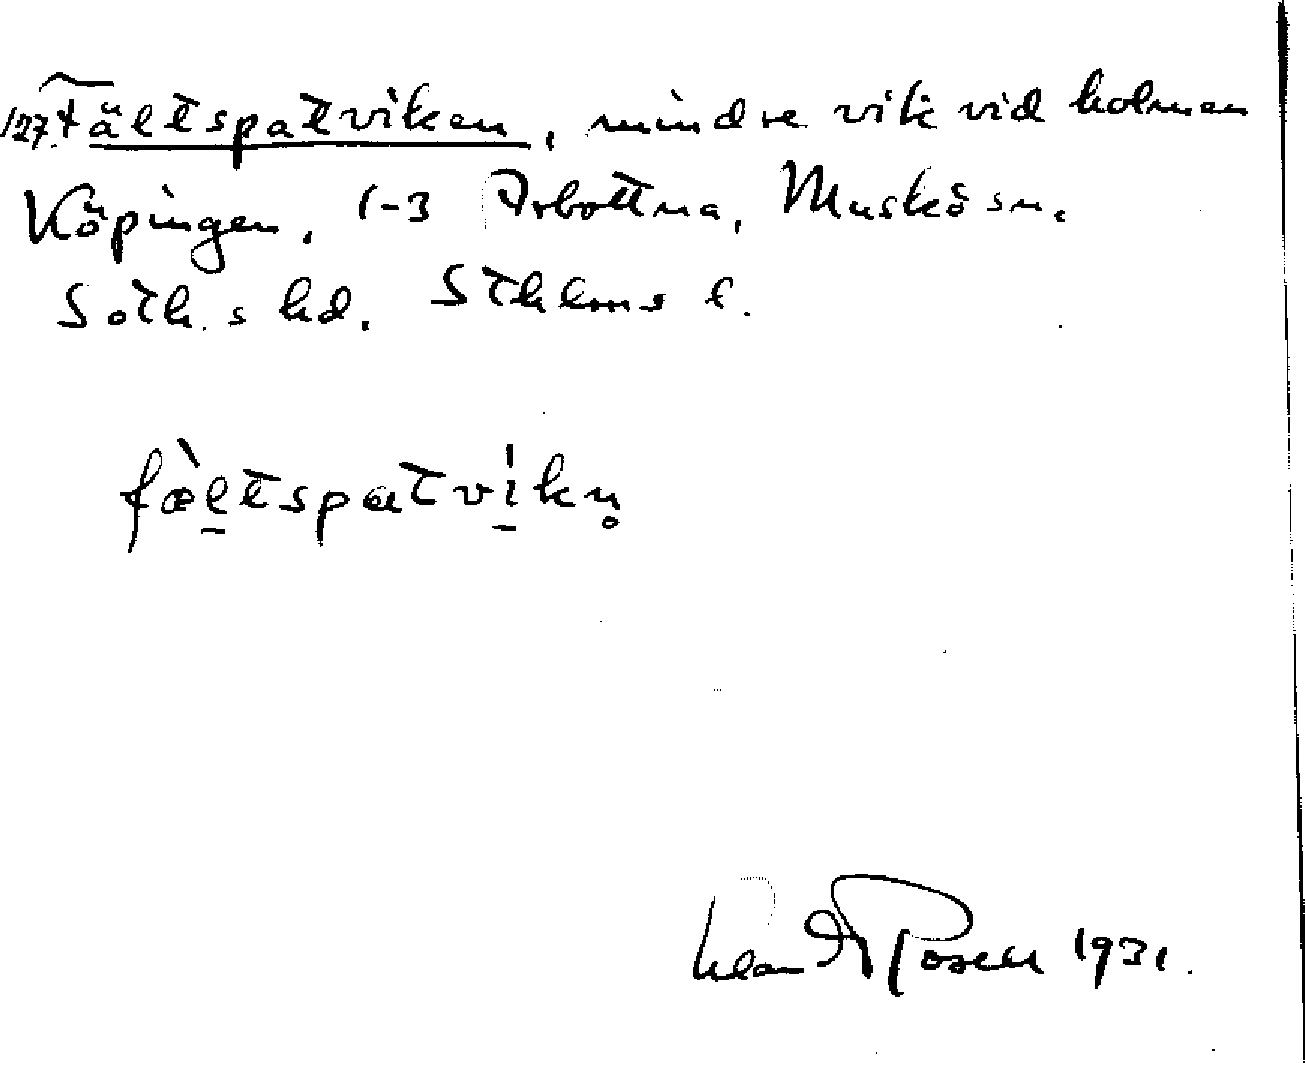 127. Fältspatviken, mindre vik vid holmen
Köpingen, 1-3 Arbottna, Muskö sn.
Soth.s hd. Sthlms l.
fæ̀ltspatvikn̥
Rosell 1931.